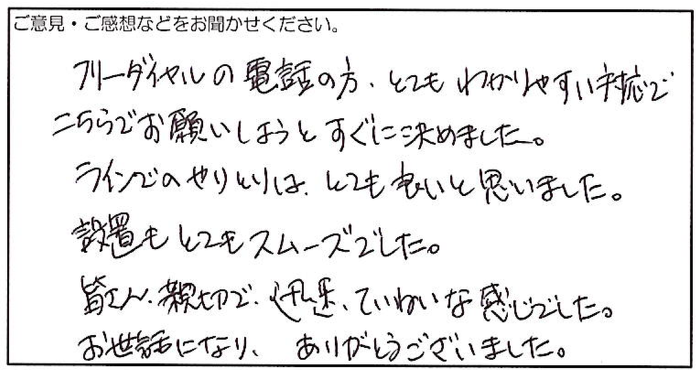 ご意見・ご感想などをお聞かせください。
フリーダイヤルの電話の方、とてもわかりやすい対応で
こちらでお願いしようとすぐに決めました。
ラインでのやりとりは、とても良いと思いました。
設置もとてもスムーズでした。
皆さん、親切で、迅速、ていねいな感じでした。
お世話になり、ありがとうございました。